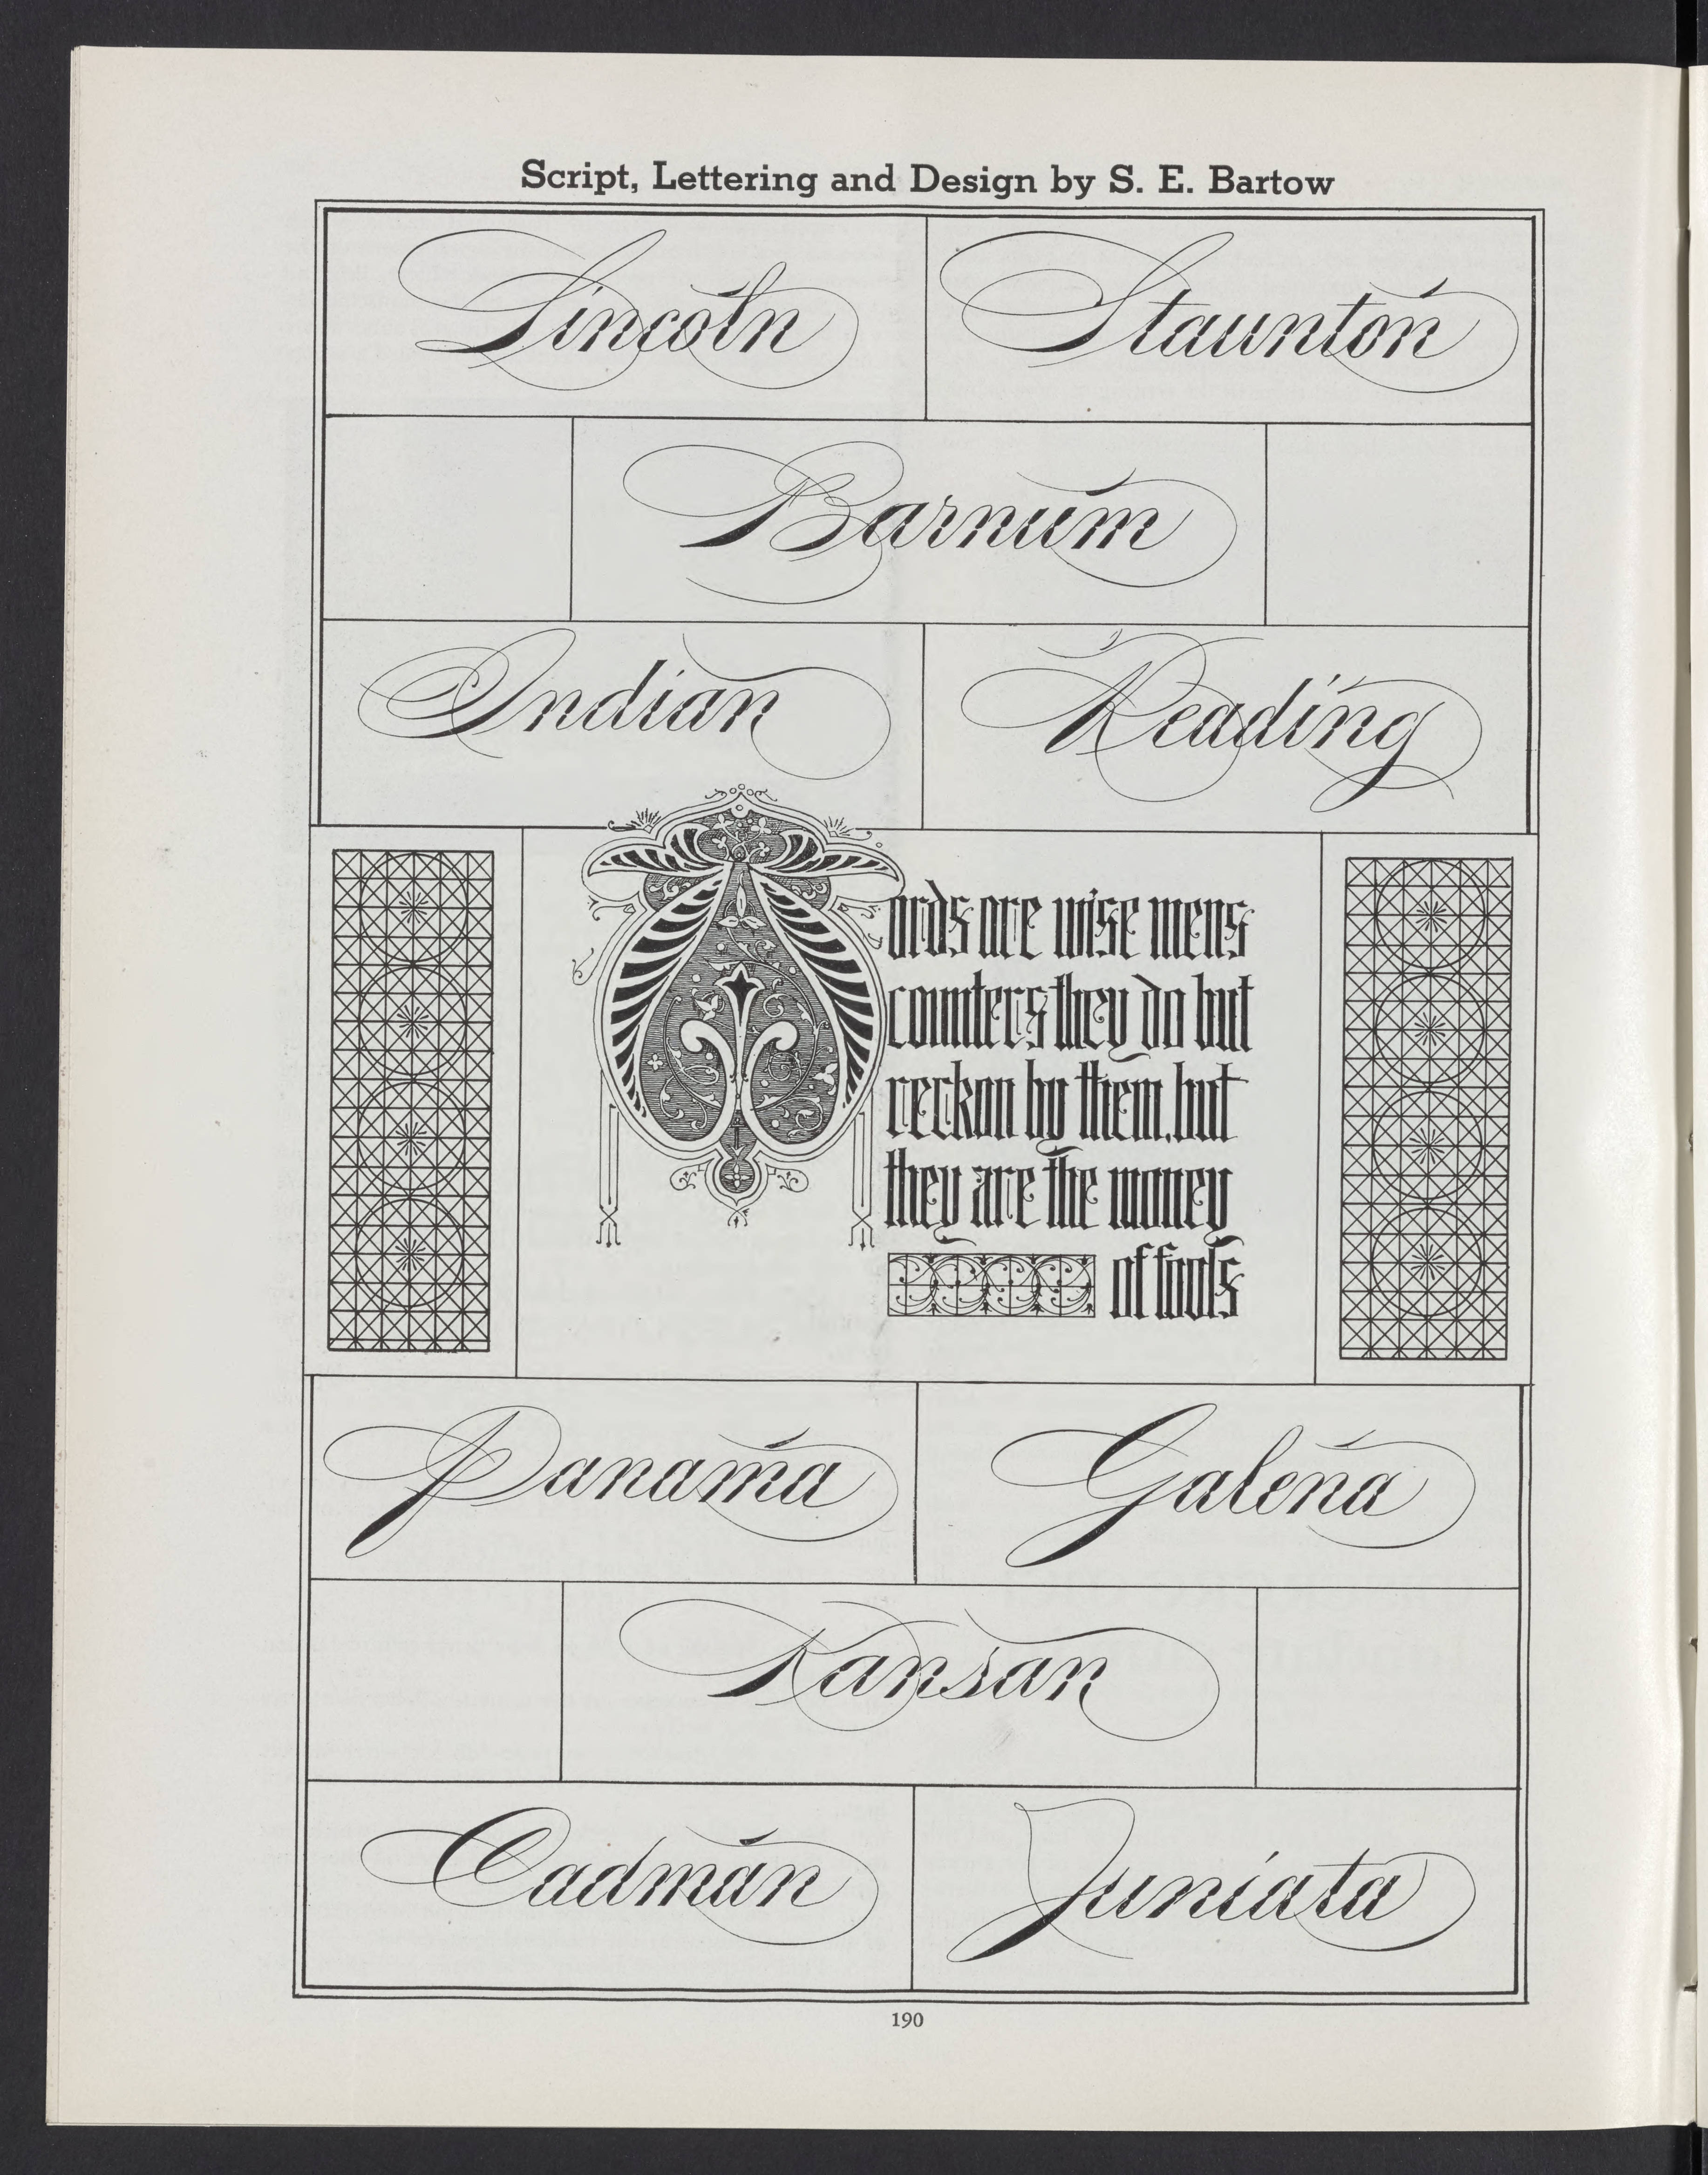 Script, Lettering and Design by S. E. Bartow
Lincoln
Staunton
Barnum
Indian
Reading
Words are wise mens
counters they do but
reckon by them. but
they are the money
of fools
Panama
Galena
Kansan
Cadman
Juniata
190